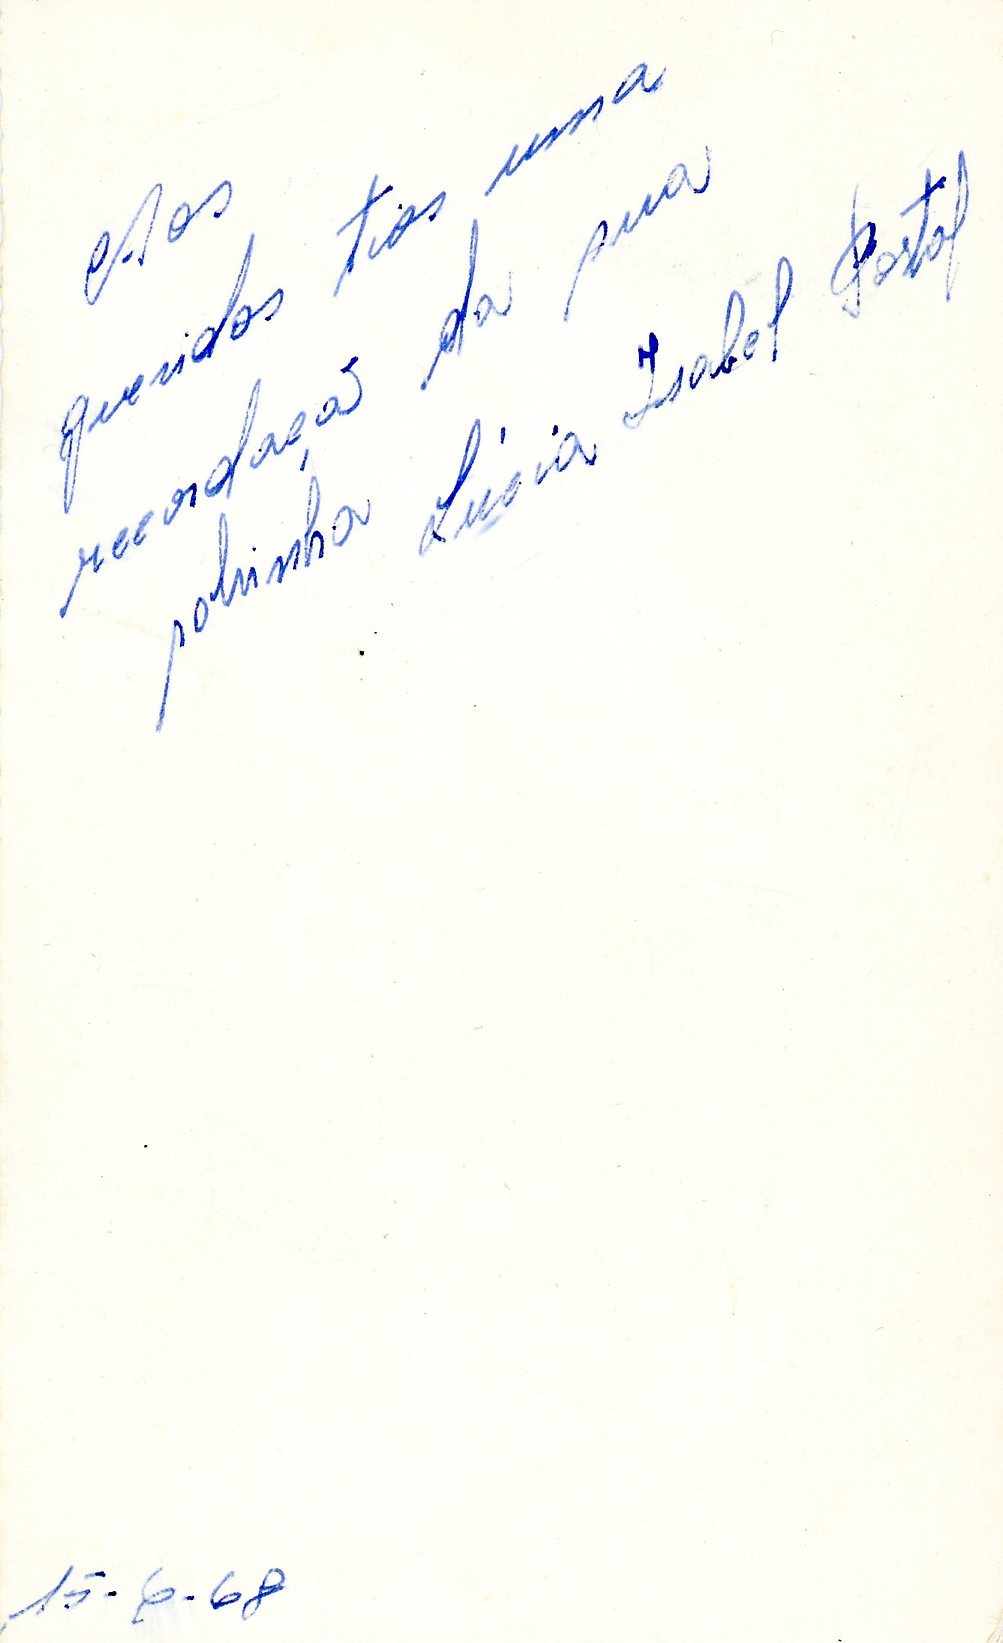 Aos
queridos tios uma
recordação da sua
sobrinha Lúcia Isabel Portal
15-6-68